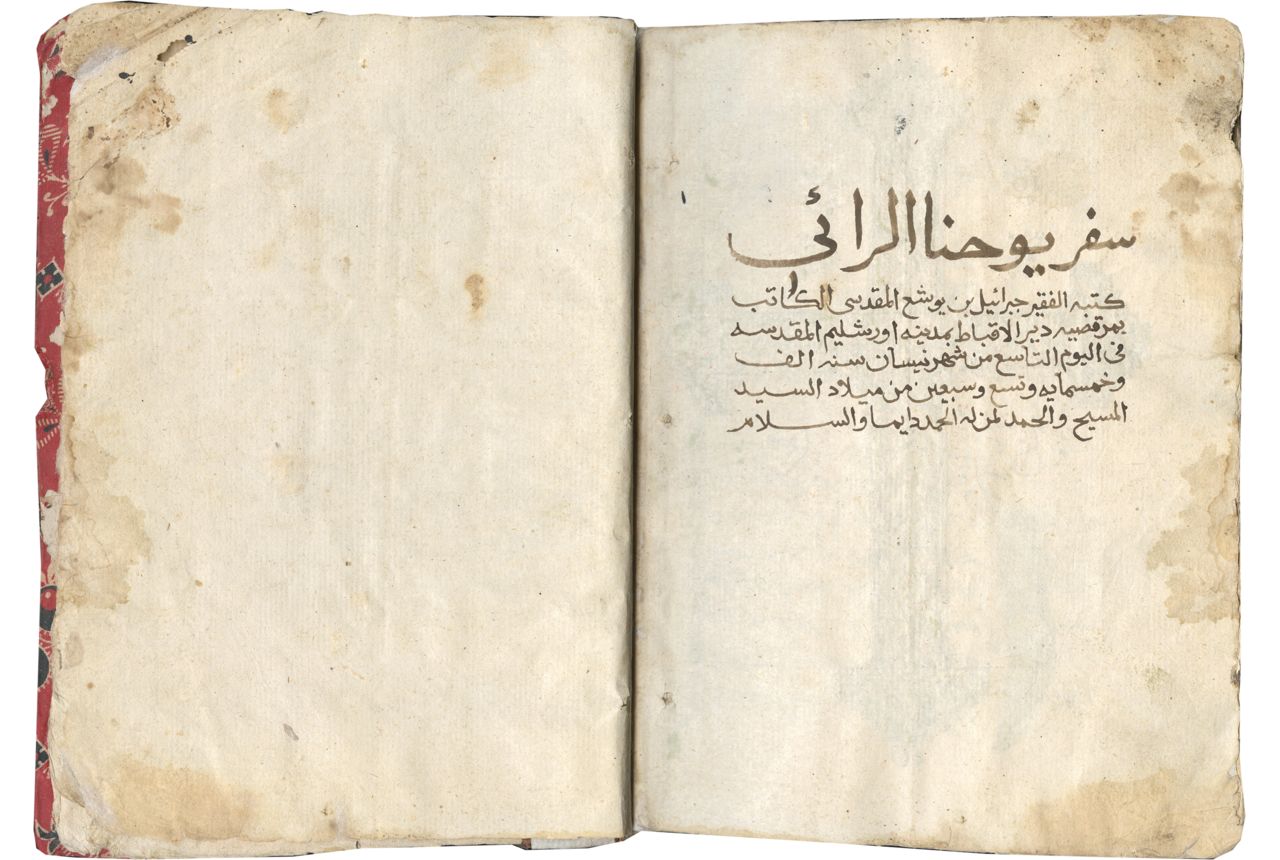 سفر يوحنا الرائي
كتبه الفقير جبرائيل بن يوشع المقدسى الكاتب
دير الاقباط بمدينه اورشليم المقدسه
فى اليوم التاسع من شهر نيسان سنه الف
وخمسمايه وتسع وسبعين من ميلاد السيد
المسيح والحمد لمن له الحمد دايما والسلام